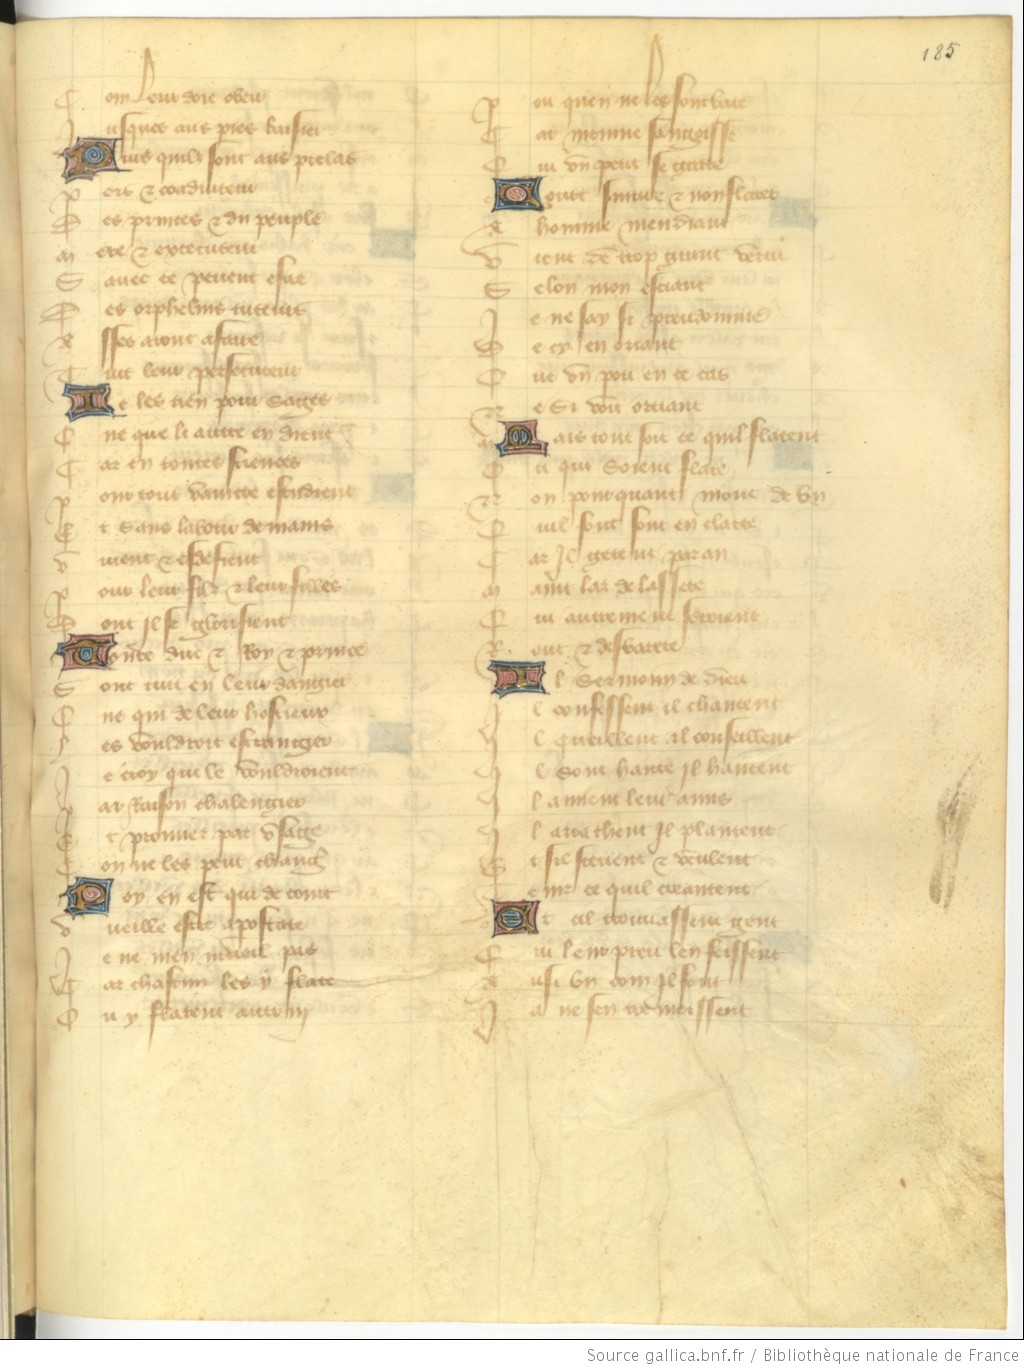 185
Com leur doie obeir
Jusques aus pies baisier
Puis quilz sont aus prelas
Pers & coadiuteur
Des princes & du peuple
Mere & executeur
S auec ce peuent estre
Des orphelins tuteurs
Asses aront afaire
Cuit leur persecuteur
Je les tien pour Sages
Que que li autre en dient
Car en toutes sciences
Pour tout vaincre estudient
Et Sans labour de mains
Viuent & esdefient
Pour leur filz & leur filles
Dont jl se glorifient
Conte duc & Roy & prince
Sont tuit en leur dangier
Que qui de leur hostieux
Les vouldroit estrangier
Je croy que le vouldroient
Par Raison chalengier
Et prouuer par vsage
Con ne les peut changier
Roy en est qui de court
Vueille estre apostate
Je ne men merueil pas
Car chascun les y flate
Ou y flatent autrui
Pou quen ne les
Car meisme sangoisse
Qui vn petit se grate
Toute & non flater
A homme mendiant
Vient de trop grant vertu
Selon mon esciant
Je ne say si preudomme
De cy en oriant
Que vn pou en ce cas
Ne Si voit orciant
Mais tout soit ce quil flatent
Ou qui Soient flate
Non pourquant mout de bn
Quil font sont en clarte
Car Jl getent par an
Maint lar de lassete
Qui autrement seroient
Rout & desbarete
Jl Sermonnent de dieu
Jl confessent il chantent
Jl cueillent il conseillent
Jl Sont hante jl hantent
Jl ament leur amis
Jl arachent jl plantent
Et sil scheuent & veulent
Tenir ce quil creantent
Et cil trouuassent gent
Qui leur preu len feissent
Ausi bn com jl font
Ja ne sen tremeissent
Source gallica.bnf.fr / Bibliothèque nationale de France